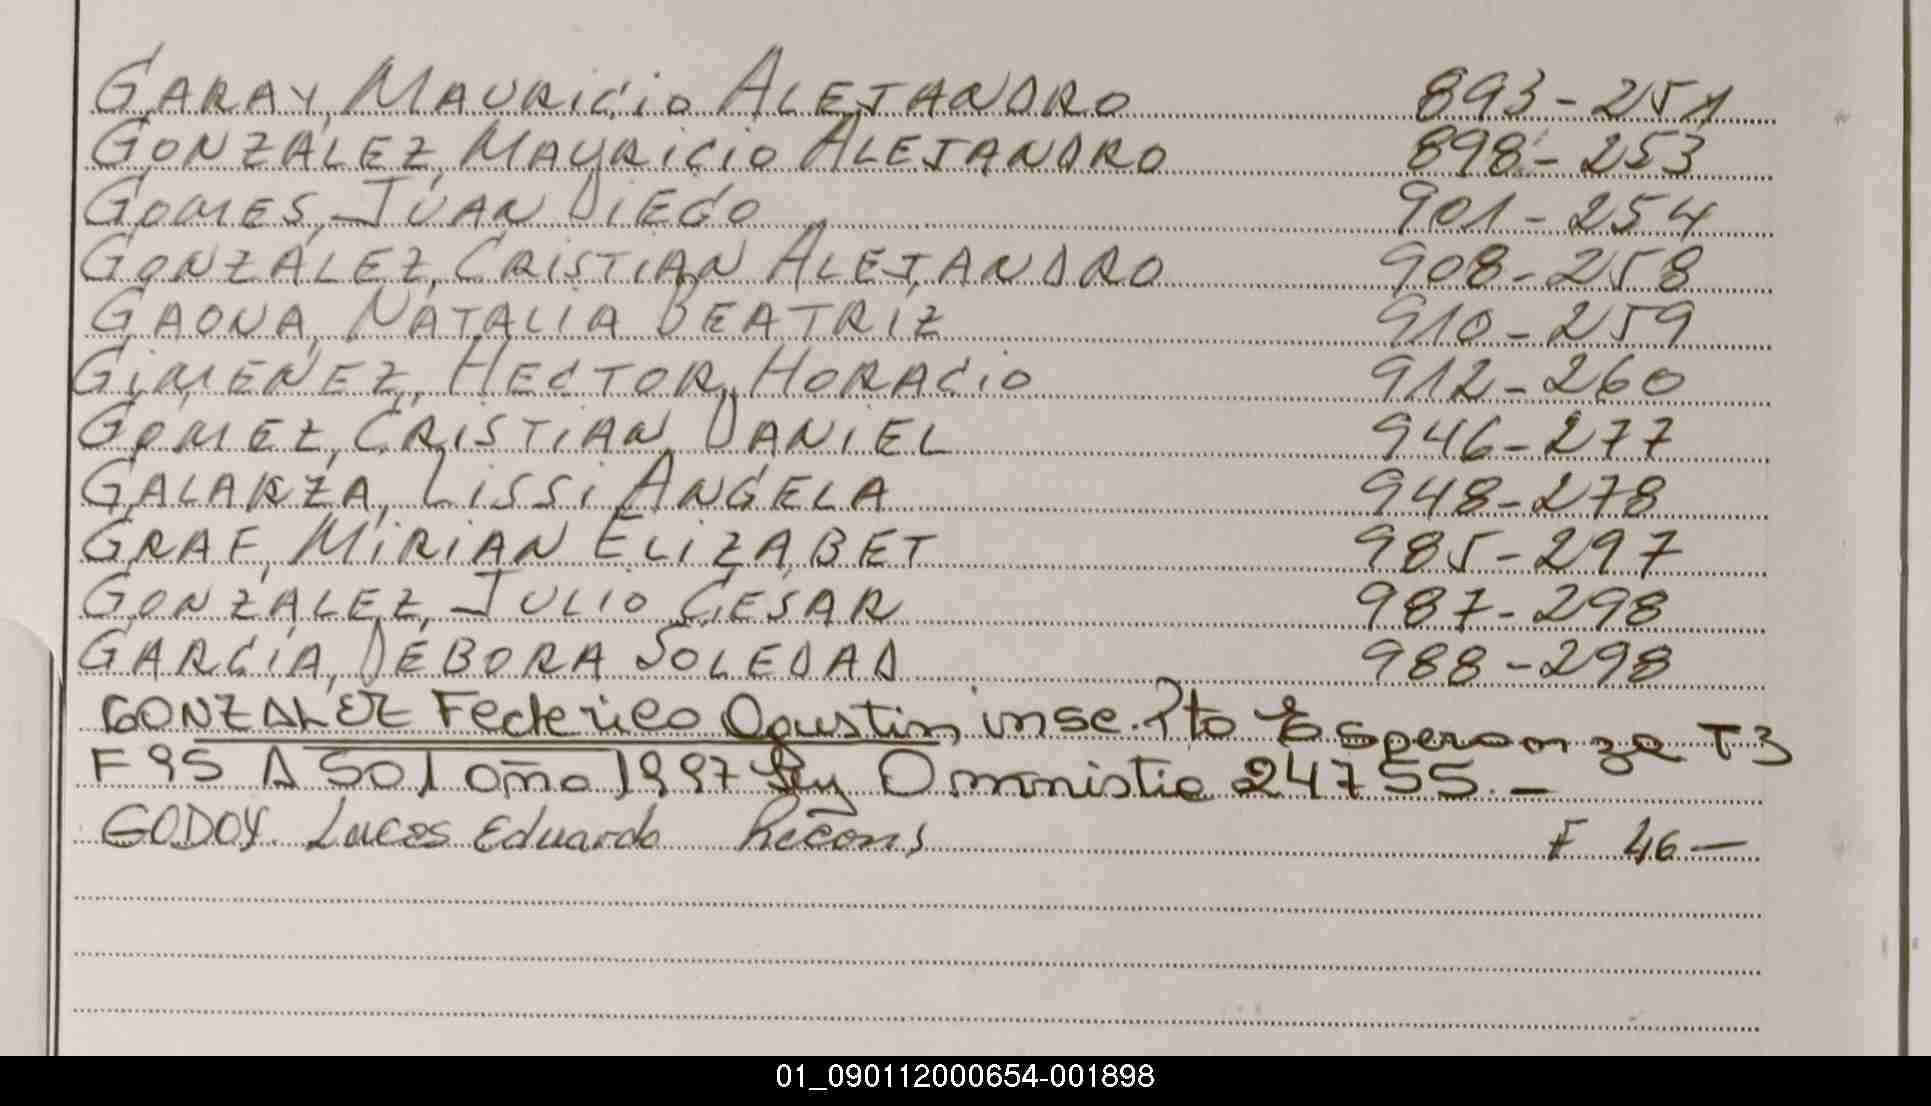 GARAY, MAURICIO ALEJANDRO 893-251
GONZÁLEZ, MAURICIO ALEJANDRO 898-253
GOMES, JUAN DIEGO 901-254
GONZÁLEZ, CRISTIAN ALEJANDRO 908-258
GAONA, NATALIA BEATRIZ 910-259
GIMENEZ, HECTOR HORACIO 912-260
GOMEZ, CRISTIAN DANIEL 946-277
GALARZA, LISSI ANGELA 948-278
GRAF, MIRIAN ELIZABET 985-297
GONZÁLEZ, JULIO CESAR 987-298
GARCÍA, DÉBORA SOLEDAD 988-298
GONZALEZ Federico Agustin, insc. Pto Esperanza T3
F 95 A 501 año 1997 Ley Amnistia 24755.-
GODOY. Lucas Eduardo F 46-
01_090112000654-001898